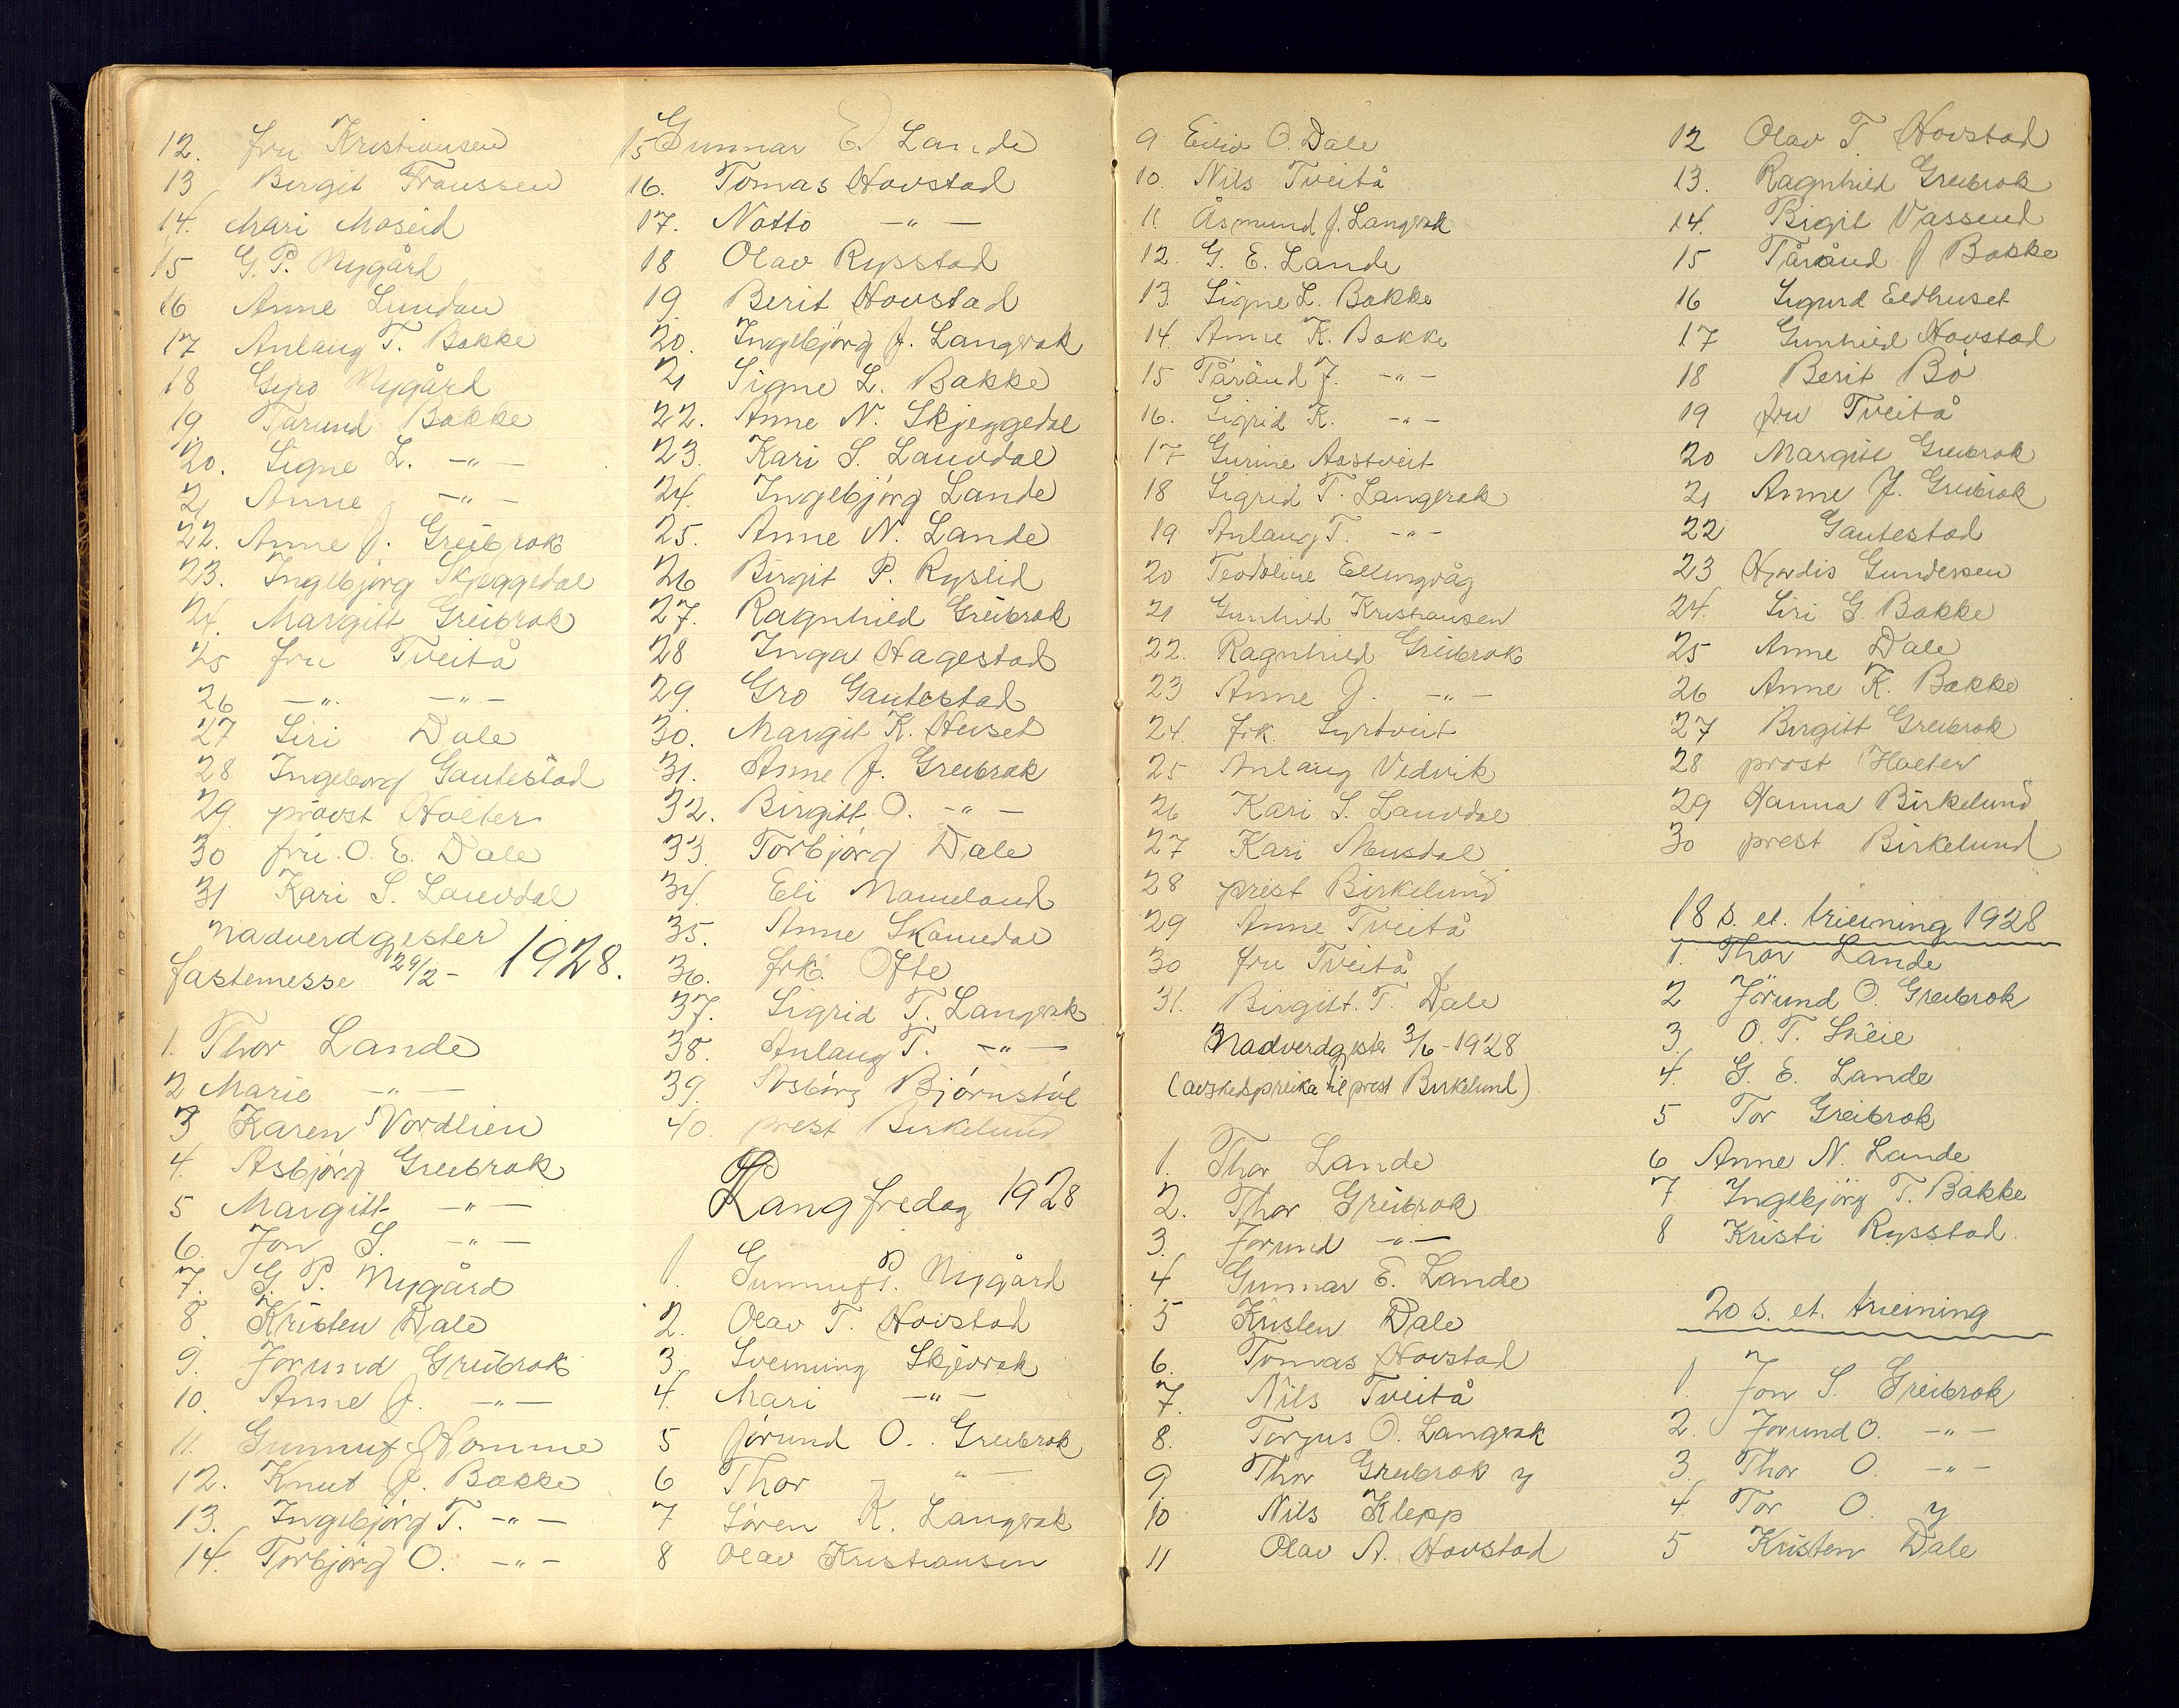 12. fru Kristiansen
13 Birgit Franssen
14. Mari Moseid
15 G. P. Nygård
16 Anne Lundan
17 Anlaug T. Bakke
18 Gyro Nygård
19 Tarund Bakke
20. Signe L. -"-
21 Anne -"-
22. Anne J. Greibrok
23. Ingebjörg Skjeggedal
24. Margitt Greibrok
25 fru Tveitå
26 -"- -"-
27 Siri Dale
28 Ingeborg Gautestad
29 provst Holter
30 fru O. E. Dale
31 Kari S. Lauvdal
Nadverdgjester
fastemesse 29/2 - 1928.
1. Thor Lande
2 Marie -"-
3 Karen Nordlien
4. Asbjörg Greibrok
5 Margitt -"-
6. Jon S. -"-
7. G. P. Nygård
8. Kristen Dale
9. Jorund Greibrok
10. Anne J. -"-
11. Gunnuf J Homme
12. Knut J. Bakke
13. Ingebjörg T. -"-
14. Torbjörg O. -"-
15 Gunnar E. Lande
16. Tomas Hovstad
17. Notto -"-
18 Olav Rysstad
19. Berit Hovstad
20. Ingebjörg J. Langerak
21 Signe L. Bakke
22. Anne N. Skjeggedal
23. Kari S. Lauvdal
24. Ingebjörg Lande
25. Anne N. Lande
26 Birgit P. Ryslid
27. Ragnhild Greibrok
28 Inga Hagestad
29. Gro Gautestad
30. Margit K. Heiset
31. Anne J. Greibrok
32. Birgitt O. -"-
33. Torbjörg Dale
34. Eli
35. Anne Skåmedal
36. frk. Ofte
37. Sigrid T. Langerak
38. Anlaug T. -"-
39. Björnstöl
40. prest Birkelund
Langfredag 1928
1. Gunnuf P. Nygård
2. Olav T. Hovstad
3. Sveinung Skjevrak
4. Mari -"-
5 Jörund O. Greibrok
6 Thor -"-
7 Sören K. Langerak
8 Olav Kristiansen
9 Eiliv O. Dale
10. Nils Tveitå
11. Åsmund J. Langerak
12. G. E. Lande
13. Signe L. Bakke
14. Anne K. Bakke
15 Tåränd J. -"-
16. Sigrid K. -"-
17 Gurine Aastveit
18 Sigrid T. Langerak
19 Anlaug T. -"-
20 Teodoline Ellingvåg
21 Gunhild Kristiansen
22. Ragnhild Greibrok
23 Anne J. -"-
24. frk. Syrtveit
25 Anlaug Vedvik
26 Kari S. Lauvdal
27 Kari Mensdal
28 prest Birkelund
29 Anne Tveitå
30 fru Tveitå
31. Birgitt. T. Dale
Nadverdgjester 3/6 - 1928
(avskedspreika til prest Birkelund)
1. Thor Lande
2. Thor Greibrok
3. Jorund -"-
4 Gunnar E. Lande
5 Kristen Dale
6. Tomas Hovstad
7. Nils Tveitå
8. Torgus O. Langerak
9. Thor Greibrok y
10 Nils Klepp
11 Olav A. Hovstad
12 Olav T. Hovstad
13. Ragnhild Greibrok
14. Birgit Vassend
15 Tåråund J Bakke
16 Sigurd Eldhuset
17 Gunhild Hovstad
18 Berit Bö
19 fru Tveitå
20 Margitt Greibrok
21 Anne J. Greibrok
22 Gautestad
23 Hjørdis Gundersen
24. Siri G. Bakke
25 Anne Dale
26 Anne K. Bakke
27 Birgitt Greibrok
28 prost Holter
29 Hanna Birkelund
30 prest Birkelund
18 s. et. trieining 1928
1. Thor Lande
2 Jörund O. Greibrok
3. O. T. Skeie
4. G. E. Lande
5 Tor Greibrok
6 Anne N. Lande
7 Ingebjörg T. Bakke
8 Kristi Rysstad.
20 s. et. trieining
1. Jon S. Greibrok
2. Jorund O. -"-
3. Thor O. -"-
4. Tor O. y
5 Kristen Dale